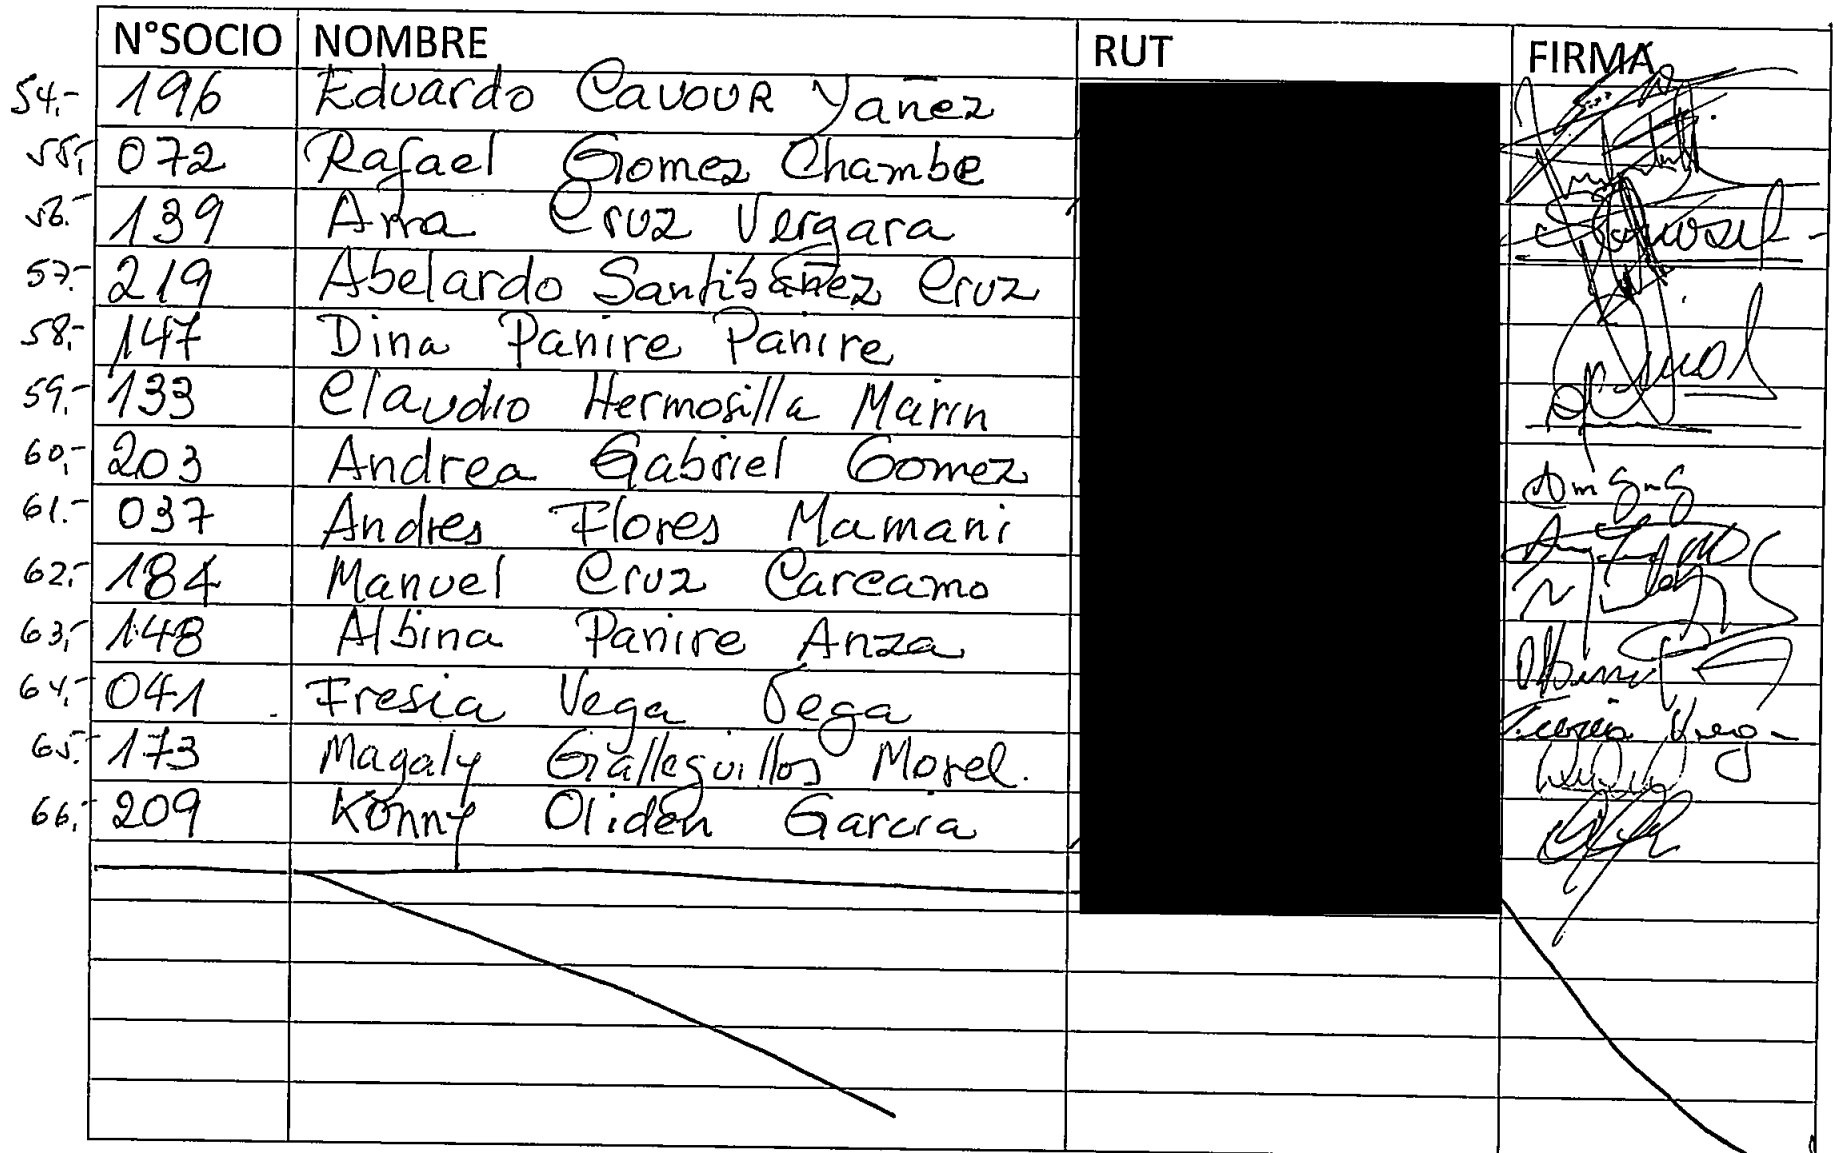 N°SOCIO NOMBRE RUT FIRMA
54.- 196 Eduardo Cavour Yañez
55.- 072 Rafael Gomez Chambe
56.- 139 Ana Cruz Vergara
57.- 219 Abelardo Santibañez Cruz
58.- 147 Dina Panire Panire
59.- 133 Claudio Hermosilla Marin
60.- 203 Andrea Gabriel Gomez
61.- 037 Andres Flores Mamani
62.- 184 Manuel Cruz Carcamo
63.- 148 Albina Panire Anza
64.- 041 Fresia Vega Vega
65.- 173 Magaly Galleguillos Morel.
66.- 209 Konny Oliden Garcia